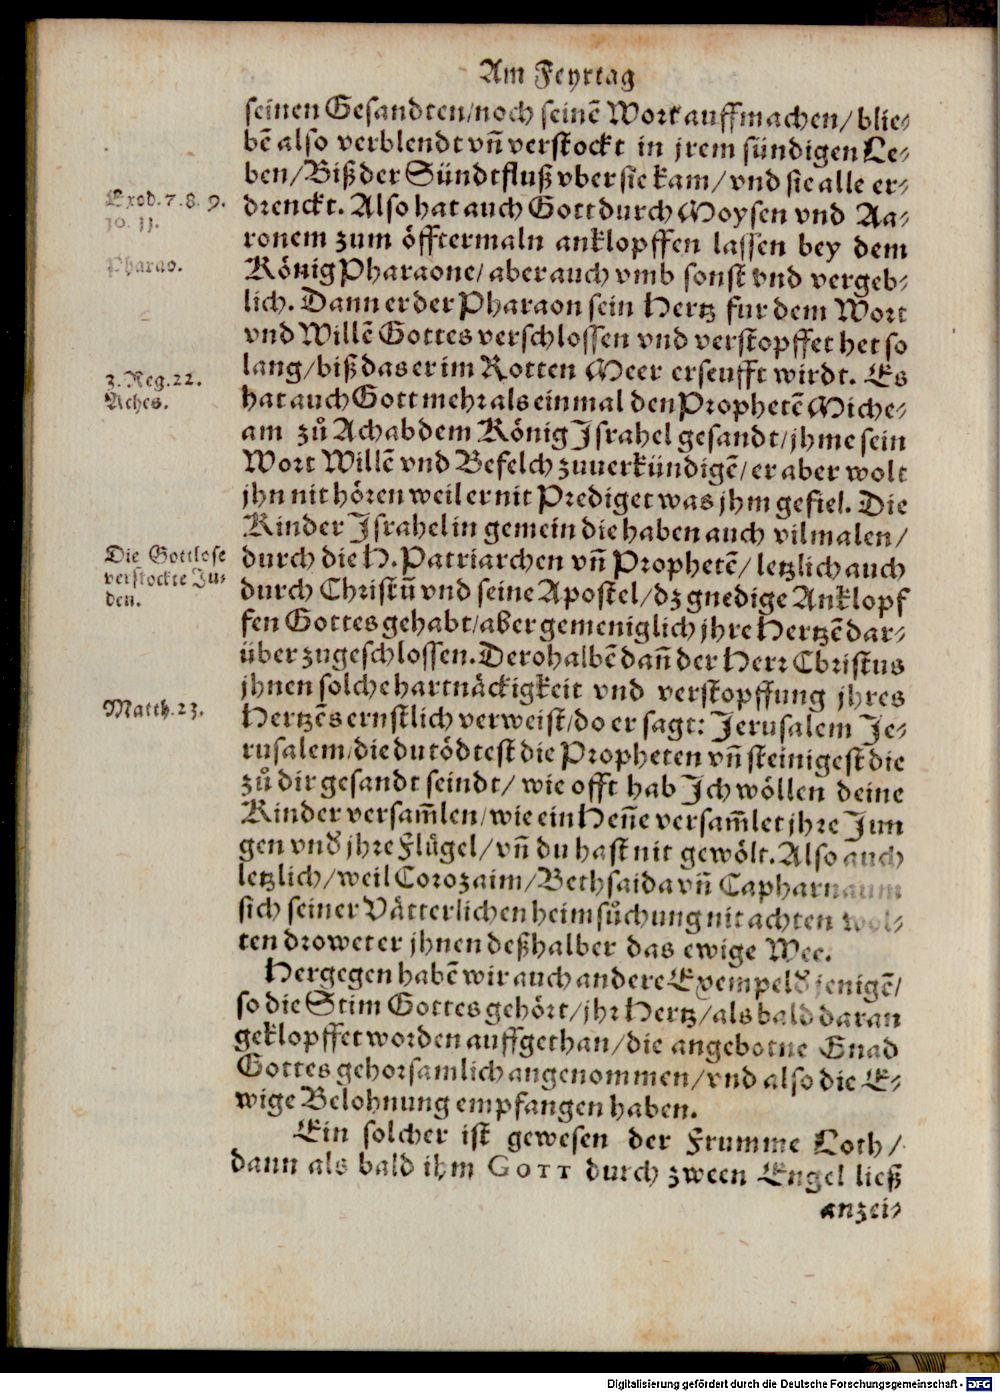 Am Feyrtag
seinen Gesandten/noch seinẽ Wort auffmachen/ blie-
bẽ also verblendt vñ verstockt in jrem sündigen Le-
ben/Biß der Sündtfluß vber sie kam/ vnd sie alle er-
Exod. 7. 8. 9.
10. 11.
drenckt. Also hat auch Gott durch Moysen vnd Aa-
ronem zum öfftermaln anklopffen lassen bey dem
Pharao.
König Pharaone/ aber auch vmb sonst vnd vergeb-
lich. Dann er der Pharaon sein Hertz fur dem Wort
vnd Willẽ Gottes verschlossen vnd verstopffet het so
lang/biß das er im Rotten Meer erseufft wirdt. Es
3. Reg. 22.
Aches.
hat auch Gott mehr als einmal den Prophetẽ Miche-
am zů Achab dem König Jsrahel gesandt/jhme sein
Wort Willẽ vnd Befelch zuuerkündigẽ/ er aber wolt
jhn nit hören weil er nit Prediget was jhm gefiel. Die
Kinder Jsrahel in gemein die haben auch vilmalen/
Die Gottlose
verstockte Ju-
den.
durch die H. Patriarchen vñ Prophetẽ/ letzlich auch
durch Christũ vnd seine Apostel/dz gnedige Anklopf
fen Gottes gehabt/aber gemeniglich jhre Hertzẽ dar-
über zugeschlossen. Derohalbẽ dañ der Herr Christus
jhnen solche hartnäckigkeit vnd verstopffung jhres
Matth. 23.
Hertzẽs ernstlich verweist/do er sagt: Jerusalem Je-
rusalem/die du tödtest die Propheten vñ steinigest die
zů dir gesandt seindt/ wie offt hab Jch wöllen deine
Kinder versam̃len/wie ein Heñe versam̃let jhre Jun
gen vnd jhre Flügel/vñ du hast nit gewölt. Also auch
letzlich/weil Corozaim/Bethsaida vñ Capharnaum
sich seiner Vätterlichen heimsůchung nit achten wol-
ten drowet er jhnen deßhalber das ewige Wee.
Hergegen habẽ wir auch andere Exempel d jenigẽ/
so die Stim Gottes gehört/jhr Hertz/als bald daran
geklopffet worden auffgethan/die angebotne Gnad
Gottes gehorsamlich angenommen/vnd also die E-
wige Belohnung empfangen haben.
Ein solcher ist gewesen der Frumme Loth/
dann als bald ihm GOTT durch zween Engel ließ
anzei-
Digitalisierung gefördert durch die Deutsche Forschungsgemeinschaft - DFG